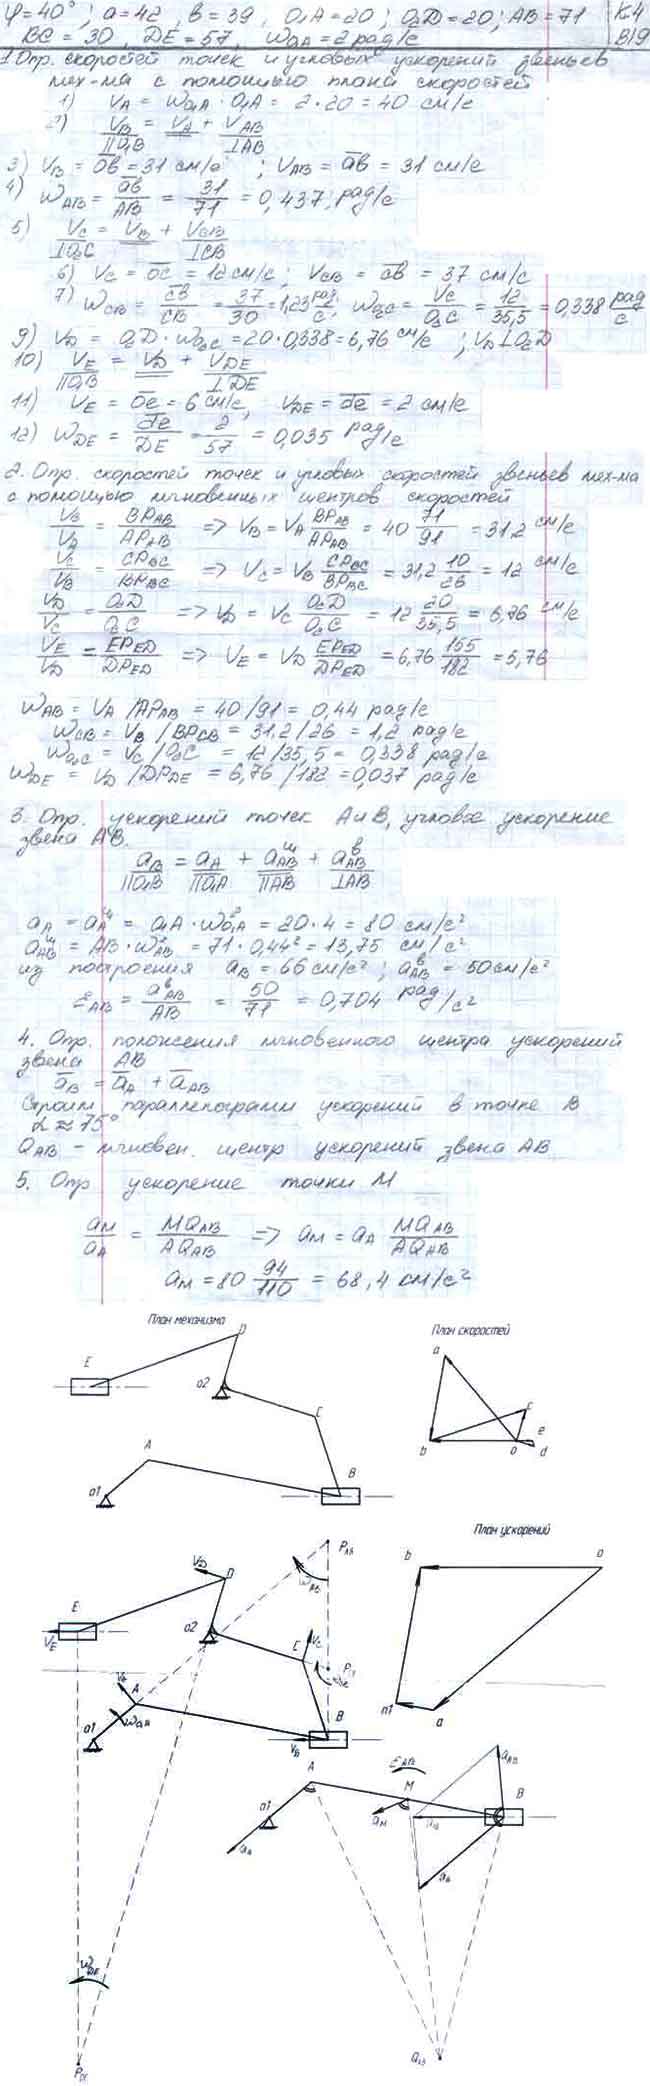 φ=40° ; a=42 , в=39 , O₁A=20 ; O₂D=20 ; AB=71 К4
BC = 30 , DE=57, ω_O₁A=2 рад/с В19
1. Опр. скоростей точек и угловых ускорений звеньев
мех-ма с помощью плана скоростей
1) V_A = ω_O₁A · O₁A = 2·20 = 40 см/с
2) V_B = V_A + V_AB
||O₁B ⊥AB
3) V_B = ōb = 31 см/с ; V_AB = ab = 31 см/с
4) ω_AB = ab/AB = 31/71 = 0,437; рад/с
5) V_C = V_B + V_CB
⊥O₂C ⊥CB
6) V_C = oc = 12 см/с ; V_CB = cb = 37 см/с
7) ω_CB = cb/CB = 37/30 = 1,23 рад/с; ω_O₂C = V_C/O₂C = 12/35,5 = 0,338 рад/с
9) V_D = O₂D · ω_O₂C = 20·0,338 = 6,76 см/с ; V_D⊥O₂D
10) V_E = V_D + V_DE
||O₁B ⊥DE
11) V_E = oe = 6 см/с, V_DE = de = 2 см/с
12) ω_DE = de/DE = 2/57 = 0,035 рад/с
2. Опр. скоростей точек и угловых скоростей звеньев мех-ма
с помощью мгновенных центров скоростей
V_B/V_A = BP_AB/AP_AB => V_B = V_A BP_AB/AP_AB = 40 71/91 = 31,2 см/с
V_C/V_B = CP_BC/BP_BC => V_C = V_B CP_BC/BP_BC = 31,2 10/26 = 12 см/с
V_D/V_C = O₂D/O₂C => V_D = V_C O₂D/O₂C = 12 20/35,5 = 6,76 см/с
V_E/V_D = EP_ED/DP_ED => V_E = V_D EP_ED/DP_ED = 6,76 155/182 = 5,76
ω_AB = V_A/AP_AB = 40/91 = 0,44 рад/с
ω_CB = V_B/BP_CB = 31,2/26 = 1,2 рад/с
ω_O₂C = V_C/O₂C = 12/35,5 = 0,338 рад/с
ω_DE = V_D/DP_DE = 6,76/182 = 0,037 рад/с
3. Опр. ускорений точек A и B, угловое ускорение
звена AB.
a_B = a_A + a_AB^ц + a_AB^в
||O₁B ||O₁A ||AB ⊥AB
a_A = a_A^ц = O₁A · ω²_O₁A = 20·4 = 80 см/с²
a_AB^ц = AB·ω²_AB = 71·0,44² = 13,75 см/с²
из построения a_B = 66 см/с² ; a_AB^в = 50 см/с²
ε_AB = a_AB^в/AB = 50/71 = 0,704 рад/с²
4. Опр. положения мгновенного центра ускорений
звена AB
a_B = a_A + a_AB
Строим параллелограмм ускорений в точке B
α ≈ 75°
Q_AB - мгновен. центр ускорений звена AB
5. Опр ускорение точки M
a_M/a_A = MQ_AB/AQ_AB => a_M = a_A MQ_AB/AQ_AB
a_M = 80 94/110 = 68,4 см/с²
План механизма
План скоростей
D
E
o2
C
A
B
o1
a
c
e
b
o
d
План ускорений
P_AB
b
o
V_D
D
ω_AB
E
o2
V_C
C
V_E
V_A
A
ω_O₁A
B
o1
V_B
n1
a
A
ε_AB
a_AB
M
B
o1
a_M
a_B
a_A
a_A
ω_DE
P_DE
Q_AB